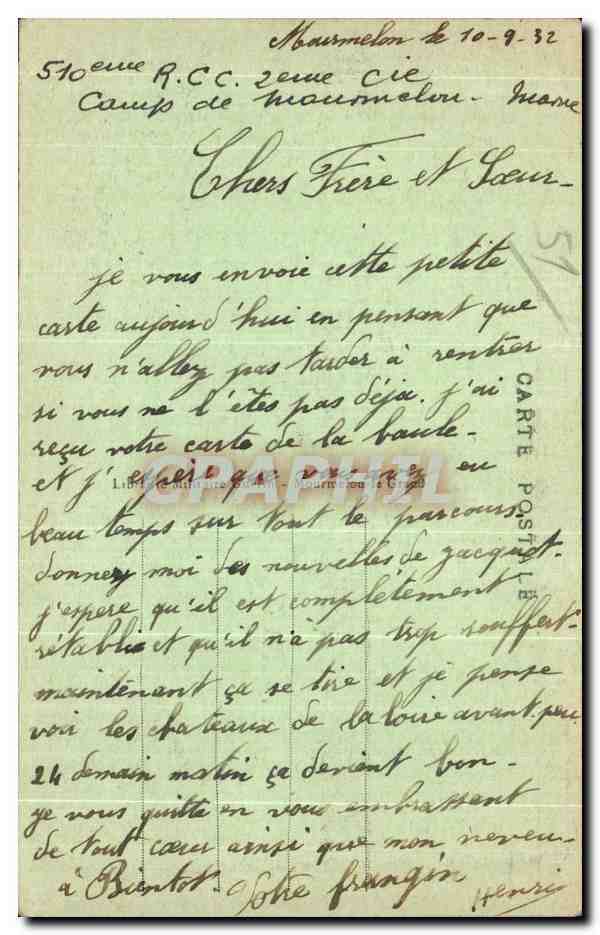 Mourmelon le 10-9-32
510eme R.C.C. 2eme Cie
Camp de Mourmelon - Marne
Chers Frère et Soeur -
51
je vous envoie cette petite
carte aujourd'hui en pensant que
vous n'allez pas tarder à rentrer
si vous ne l'êtes pas déja. j'ai
reçu votre carte de la baule -
et j'espère que vous avez eu
beau temps sur tout le parcours.
donnez moi des nouvelles de jacquot.
j'espere qu'il est complètement
rétabli et qu'il n'a pas trop souffert.
maintenant ça se tire et je pense
voir les chateaux de la loire avant peu
24 demain matin ça devient bon -
je vous quitte en vous embrassant
de tout coeur ainsi que mon neveu -
à Bientot. Votre frangin
Henri
CARTE POSTALE
Librairie Militaire - Mourmelon le Grand
CPAPHIL